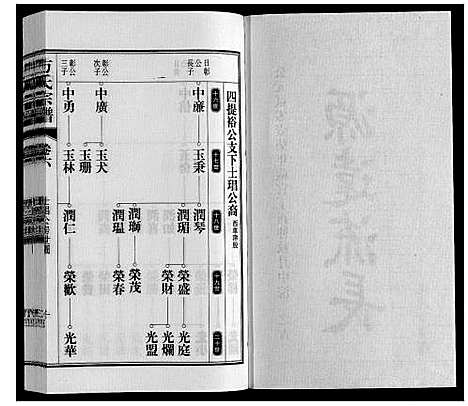 四提裕公支下士琩公裔
十六世
十七世
十八世
十九世
二十世
日彰公長子
中廉
玉秉
潤琴
潤瑂
榮盛
榮財
光庭
光爛
光盟
彰公次子
中廣
玉犬
玉珊
潤獅
潤瑥
榮茂
榮春
彰公三子
中勇
玉林
潤仁
榮歡
光華
方氏宗譜
卷六
源遠流長